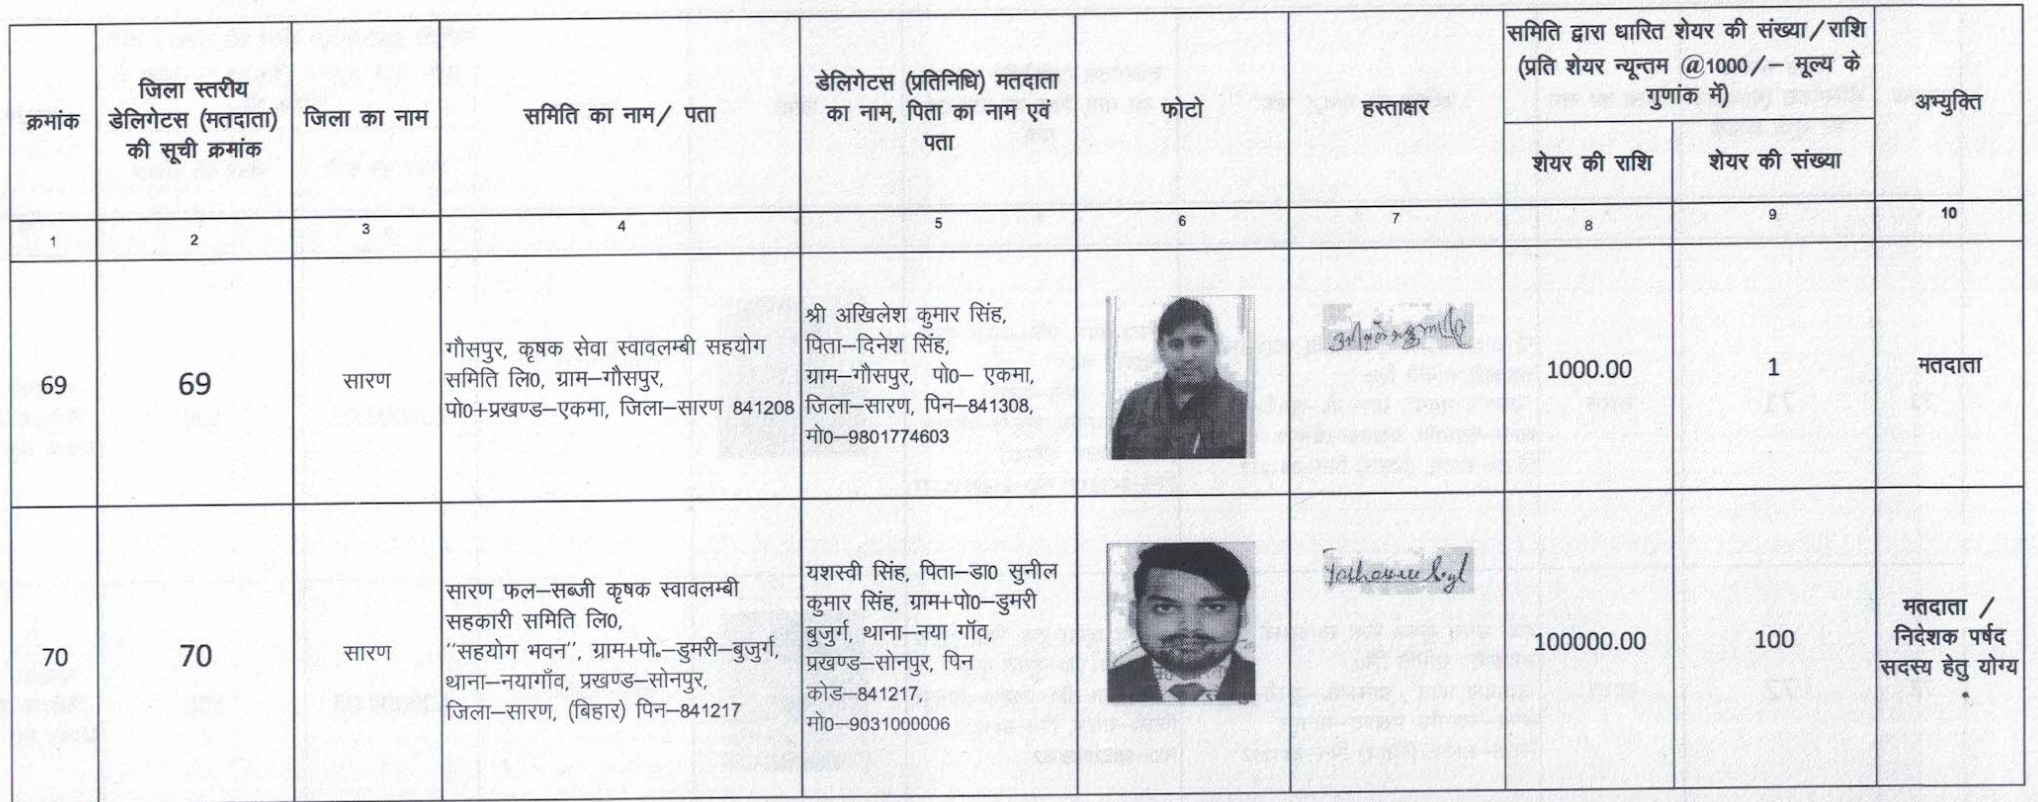 क्रमांक
जिला स्तरीय
डेलिगेटस (मतदाता)
की सूची क्रमांक
जिला का नाम
समिति का नाम/ पता
डेलिगेटस (प्रतिनिधि) मतदाता
का नाम, पिता का नाम एवं
पता
फोटो
हस्ताक्षर
समिति द्वारा धारित शेयर की संख्या/राशि
(प्रति शेयर न्यून्तम @1000/– मूल्य के
गुणांक में)
शेयर की राशि
शेयर की संख्या
अभ्युक्ति
1 2 3 4 5 6 7 8 9 10
69
69
सारण
गौसपुर, कृषक सेवा स्वावलम्बी सहयोग
समिति लि0, ग्राम–गौसपुर,
पो0+प्रखण्ड–एकमा, जिला–सारण 841208
श्री अखिलेश कुमार सिंह,
पिता–दिनेश सिंह,
ग्राम–गौसपुर, पो0– एकमा,
जिला–सारण, पिन–841308,
मो0–9801774603
1000.00
1
मतदाता
70
70
सारण
सारण फल–सब्जी कृषक स्वावलम्बी
सहकारी समिति लि0,
“सहयोग भवन”, ग्राम+पो.–डुमरी–बुजुर्ग,
थाना–नयागाँव, प्रखण्ड–सोनपुर,
जिला–सारण, (बिहार) पिन–841217
यशस्वी सिंह, पिता–डा0 सुनील
कुमार सिंह, ग्राम+पो0–डुमरी
बुजुर्ग, थाना–नया गॉव,
प्रखण्ड–सोनपुर, पिन
कोड–841217,
मो0–9031000006
100000.00
100
मतदाता /
निदेशक पर्षद
सदस्य हेतु योग्य